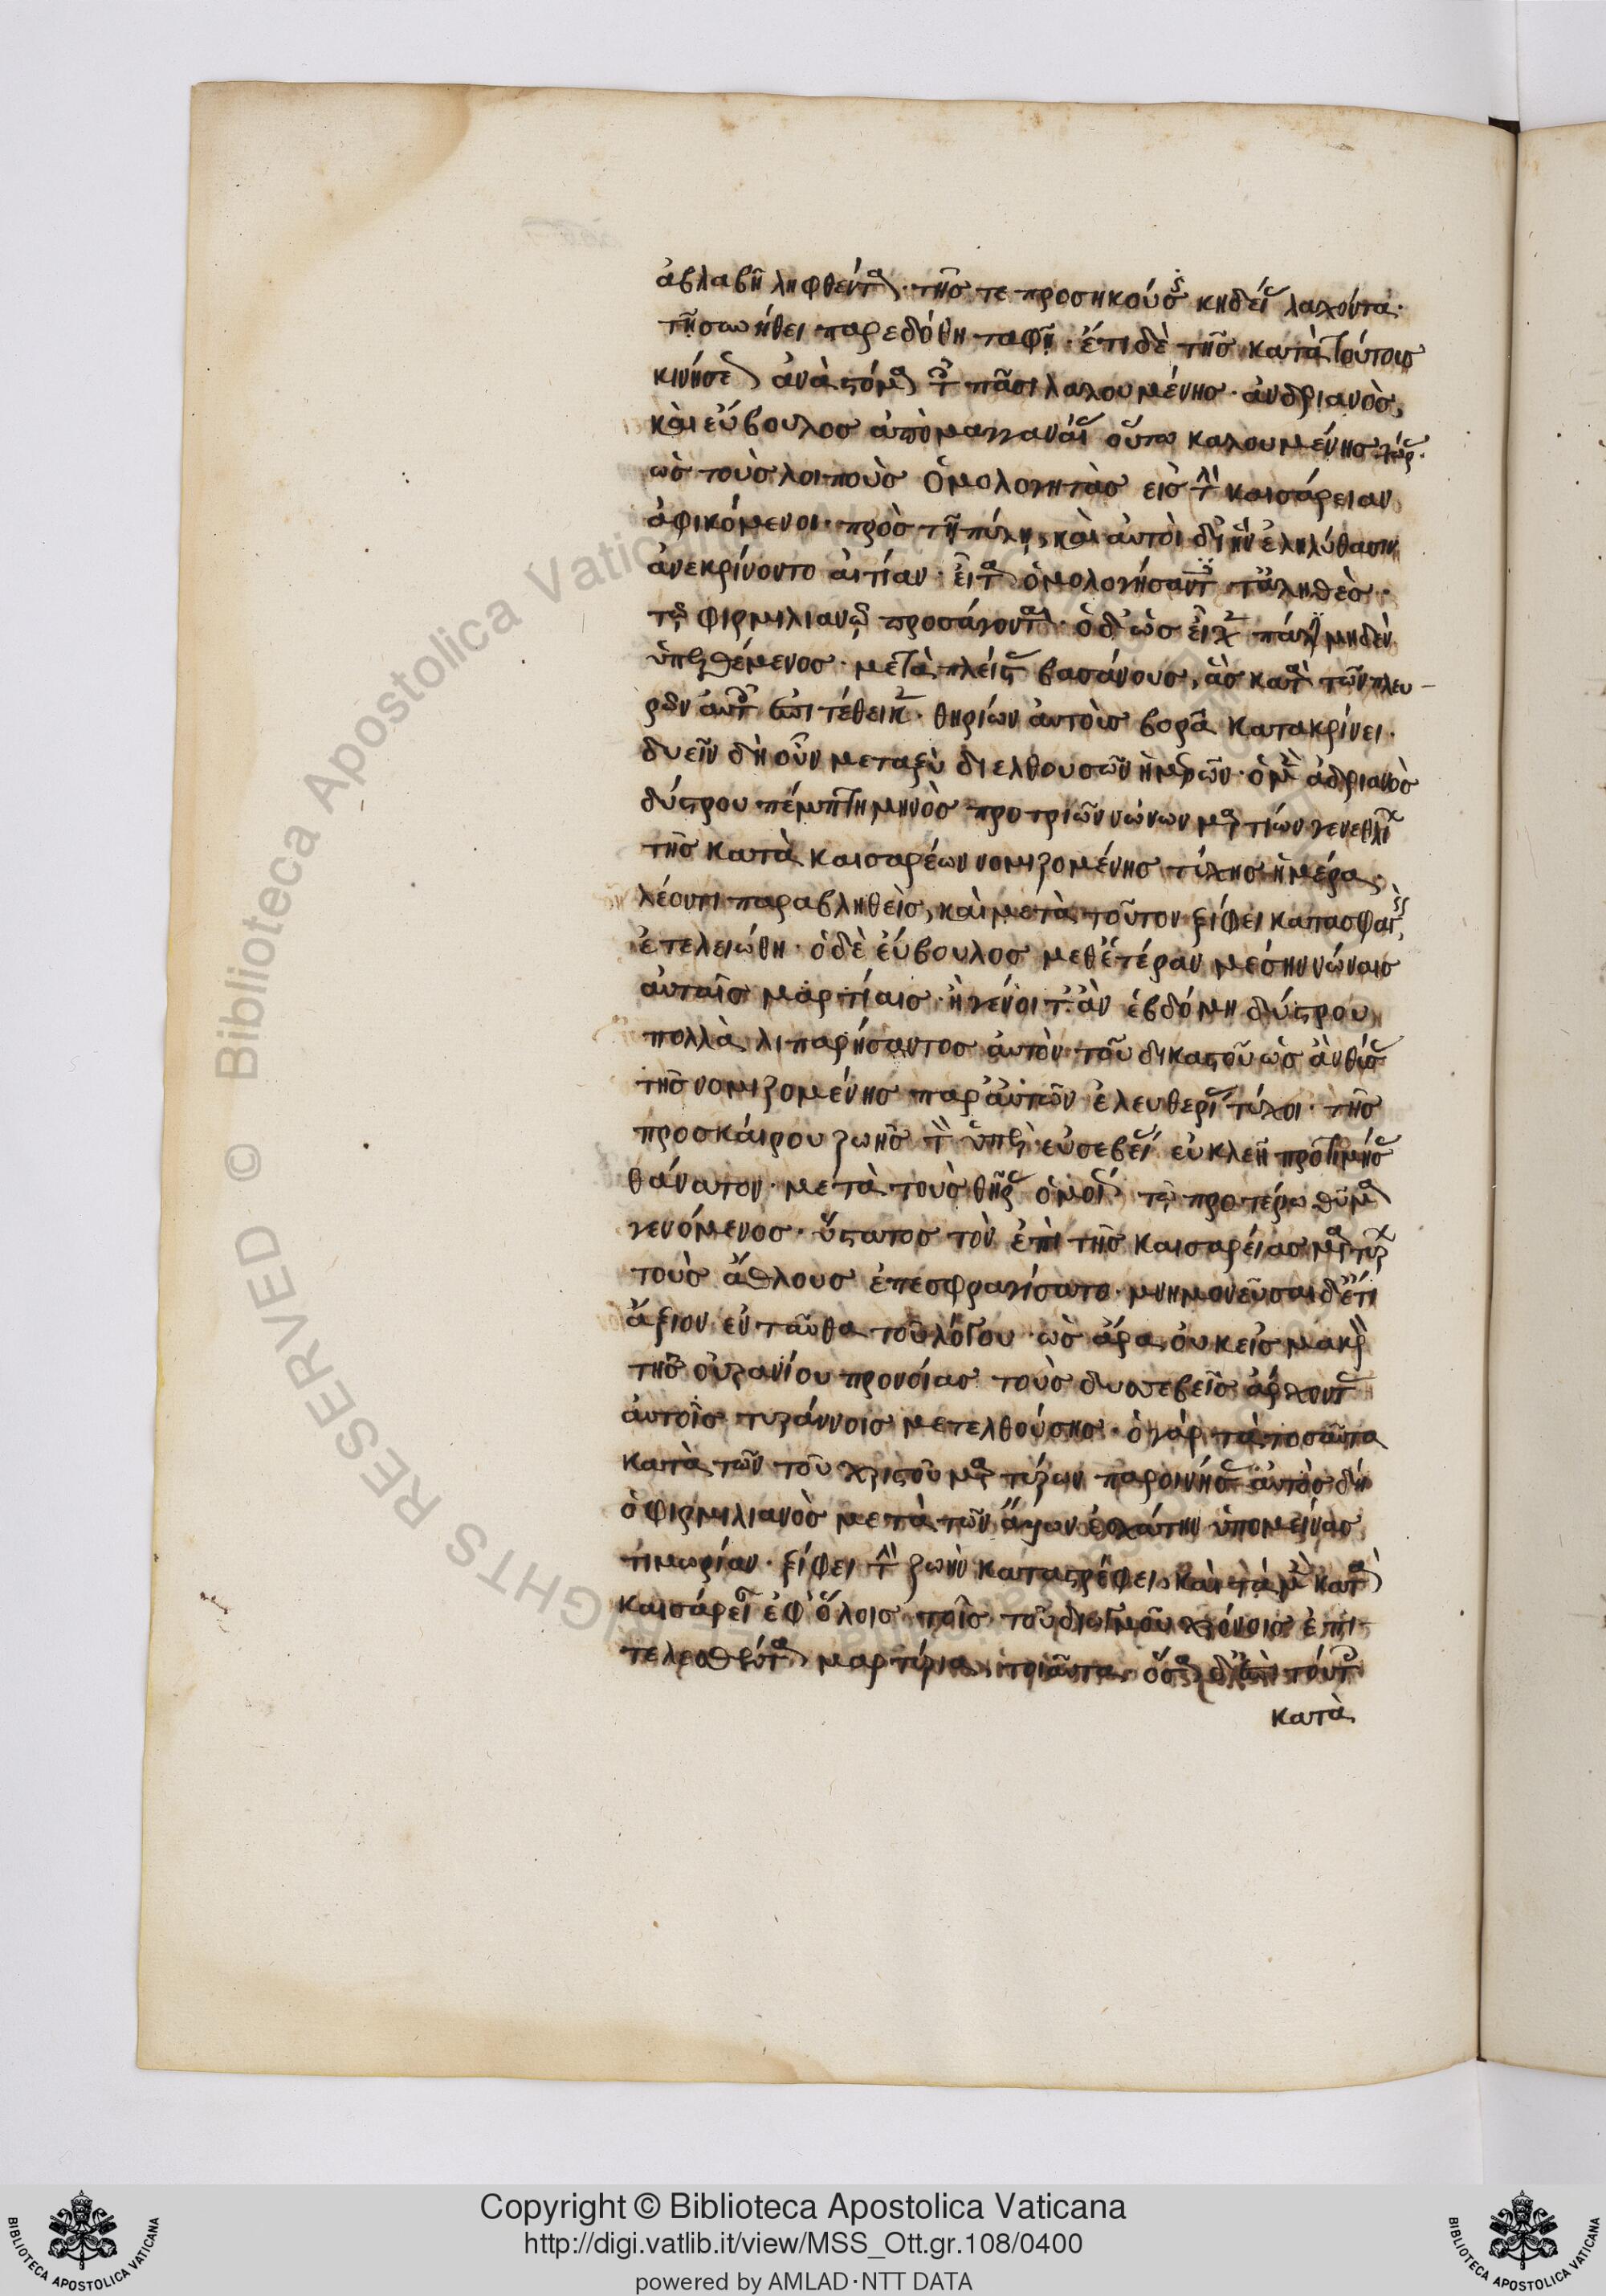 ἀβλαβῆ ληφθέντα· τῆς τε προσηκούσης κηδείας λαχόντα·
τῇ συνήθει παρεδόθη ταφῇ· ἔτι δὲ τῆς κατὰ τούτους
κινήσεως ἀνὰ στόμα τοῖς πᾶσι λαλουμένης· ἀνδριανὸς,
καὶ εὔβουλος ἀπὸ μαγγαναίας οὕτω καλουμένης χώρας·
ὡς τοὺς λοιποὺς ὁμολογητὰς εἰς τὴν καισάρειαν
ἀφικόμενοι· πρὸς τῇ πύλῃ, καὶ αὐτοὶ δι' ἣν ἐληλύθασιν
ἀνεκρίνοντο αἰτίαν· εἶτα ὁμολογήσαντες τἀληθὲς·
τῷ φιρμιλιανῷ προσάγονται· ὁ δ' ὡς εἶχε πάλιν μηδὲν
ὑπερθέμενος· μετὰ πλείστας βασάνους, ἃς κατὰ τῶν πλευ-
ρῶν αὐτοῖς ἐπιτέθεικε· θηρίων αὐτοὺς βορᾷ κατακρίνει·
δυεῖν δὴ οὖν μεταξὺ διελθουσῶν ἡμερῶν· ὁ μὲν ἀδριανὸς
δύστρου πέμπτῃ μηνὸς προ τριῶν νώνων μαρτίων γενεθλίων
τῆς κατὰ καισαρέων νομιζομένης τύχης ἡμέρᾳ·
λέοντι παραβληθεὶς, καὶ μετὰ τοῦτον ξίφει κατασφαγεὶς,
ἐτελειώθη· ὁ δὲ εὔβουλος μεθ' ἑτέραν μέσην νώναις
αὐταῖς μαρτίαις· ἣ γένοιτ' ἂν ἑβδόμη δύστρου
πολλὰ λιπαρήσαντος αὐτὸν τοῦ δικαστοῦ ὡς ἂν θύσας
τῆς νομιζομένης παρ' αὐτῶν ἐλευθερίας τύχοι· τῆς
προσκαίρου ζωῆς τὸν ὑπὲρ εὐσεβείας εὐκλεῆ προτιμήσας
θάνατον· μετὰ τοὺς θῆρας ὁμοίως τῷ προτέρῳ θῦμα
γενόμενος· ὕστατος τὸν ἐπὶ τῆς καισαρείας μαρτύρων
τοὺς ἄθλους ἐπεσφραγίσατο· μνημονεῦσαι δ' ἔτι
ἄξιον ἐνταῦθα τοῦ λόγου· ὡς ἄρα οὐκ εἰς μακρὰν
τῆς οὐρανίου προνοίας τοὺς δυσσεβεῖς ἄρχοντας
αὐτοῖς τυράννοις μετελθούσης· ὁ γὰρ τὰ τοσαῦτα
κατὰ τῶν τοῦ χριστοῦ μαρτύρων παροινήσας αὐτὸς δὴ
ὁ φιρμιλιανὸς μετὰ τῶν ἄλλων ἐσχάτην ὑπομείνας
τιμωρίαν· ξίφει τὴν ζωὴν καταστρέφει, καὶ τὰ μὲν κατὰ
καισάρειαν ἐφ' ὅλοις τοῖς τοῦ διωγμοῦ χρόνοις ἐπι-
τελεσθέντα μαρτύρια, τοιαῦτα· ὅσα δ' ἐπὶ τούτοις
κατὰ
Copyright © Biblioteca Apostolica Vaticana
http://digi.vatlib.it/view/MSS_Ott.gr.108/0400
powered by AMLAD·NTT DATA